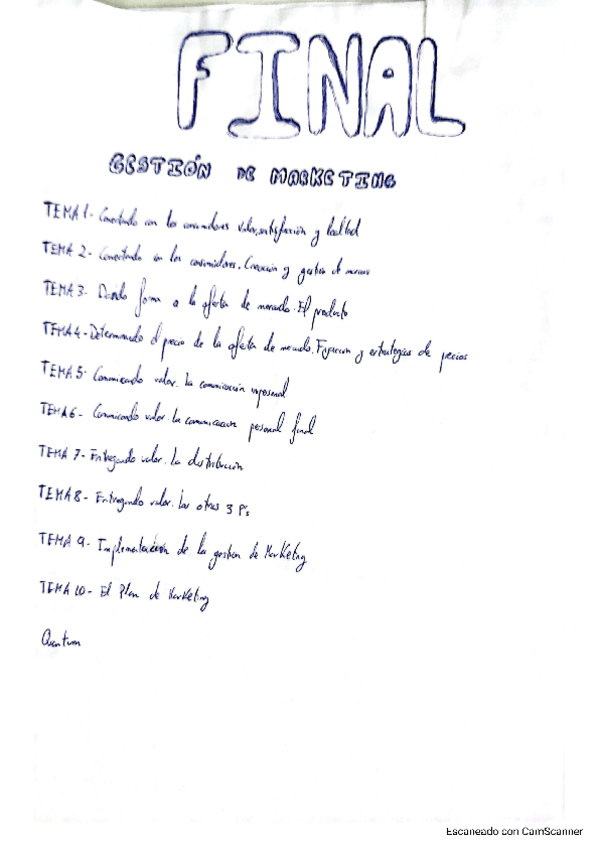 FINAL
GESTIÓN DE MARKETING
TEMA 1- Conectando con los consumidores valor, satisfacción y lealtad
TEMA 2- Conectando con los consumidores. Creación y gestión de marcas
TEMA 3- Dando forma a la oferta de mercado. El producto
TEMA 4- Determinando el precio de la oferta de mercado. Fijacion y estrategias de precios
TEMA 5- Comunicando valor. la comunicación impersonal
TEMA 6- Comunicando valor la comunicacion personal final
TEMA 7- Entregando valor. La distribución
TEMA 8- Entregando valor. las otras 3 P's
TEMA 9- Implementación de la gestion de Marketing
TEMA 10- El Plan de Marketing
Quantum
Escaneado con CamScanner